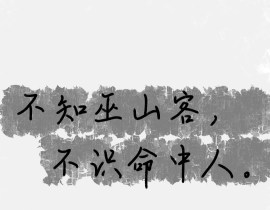 不知巫山客，
不识命中人。